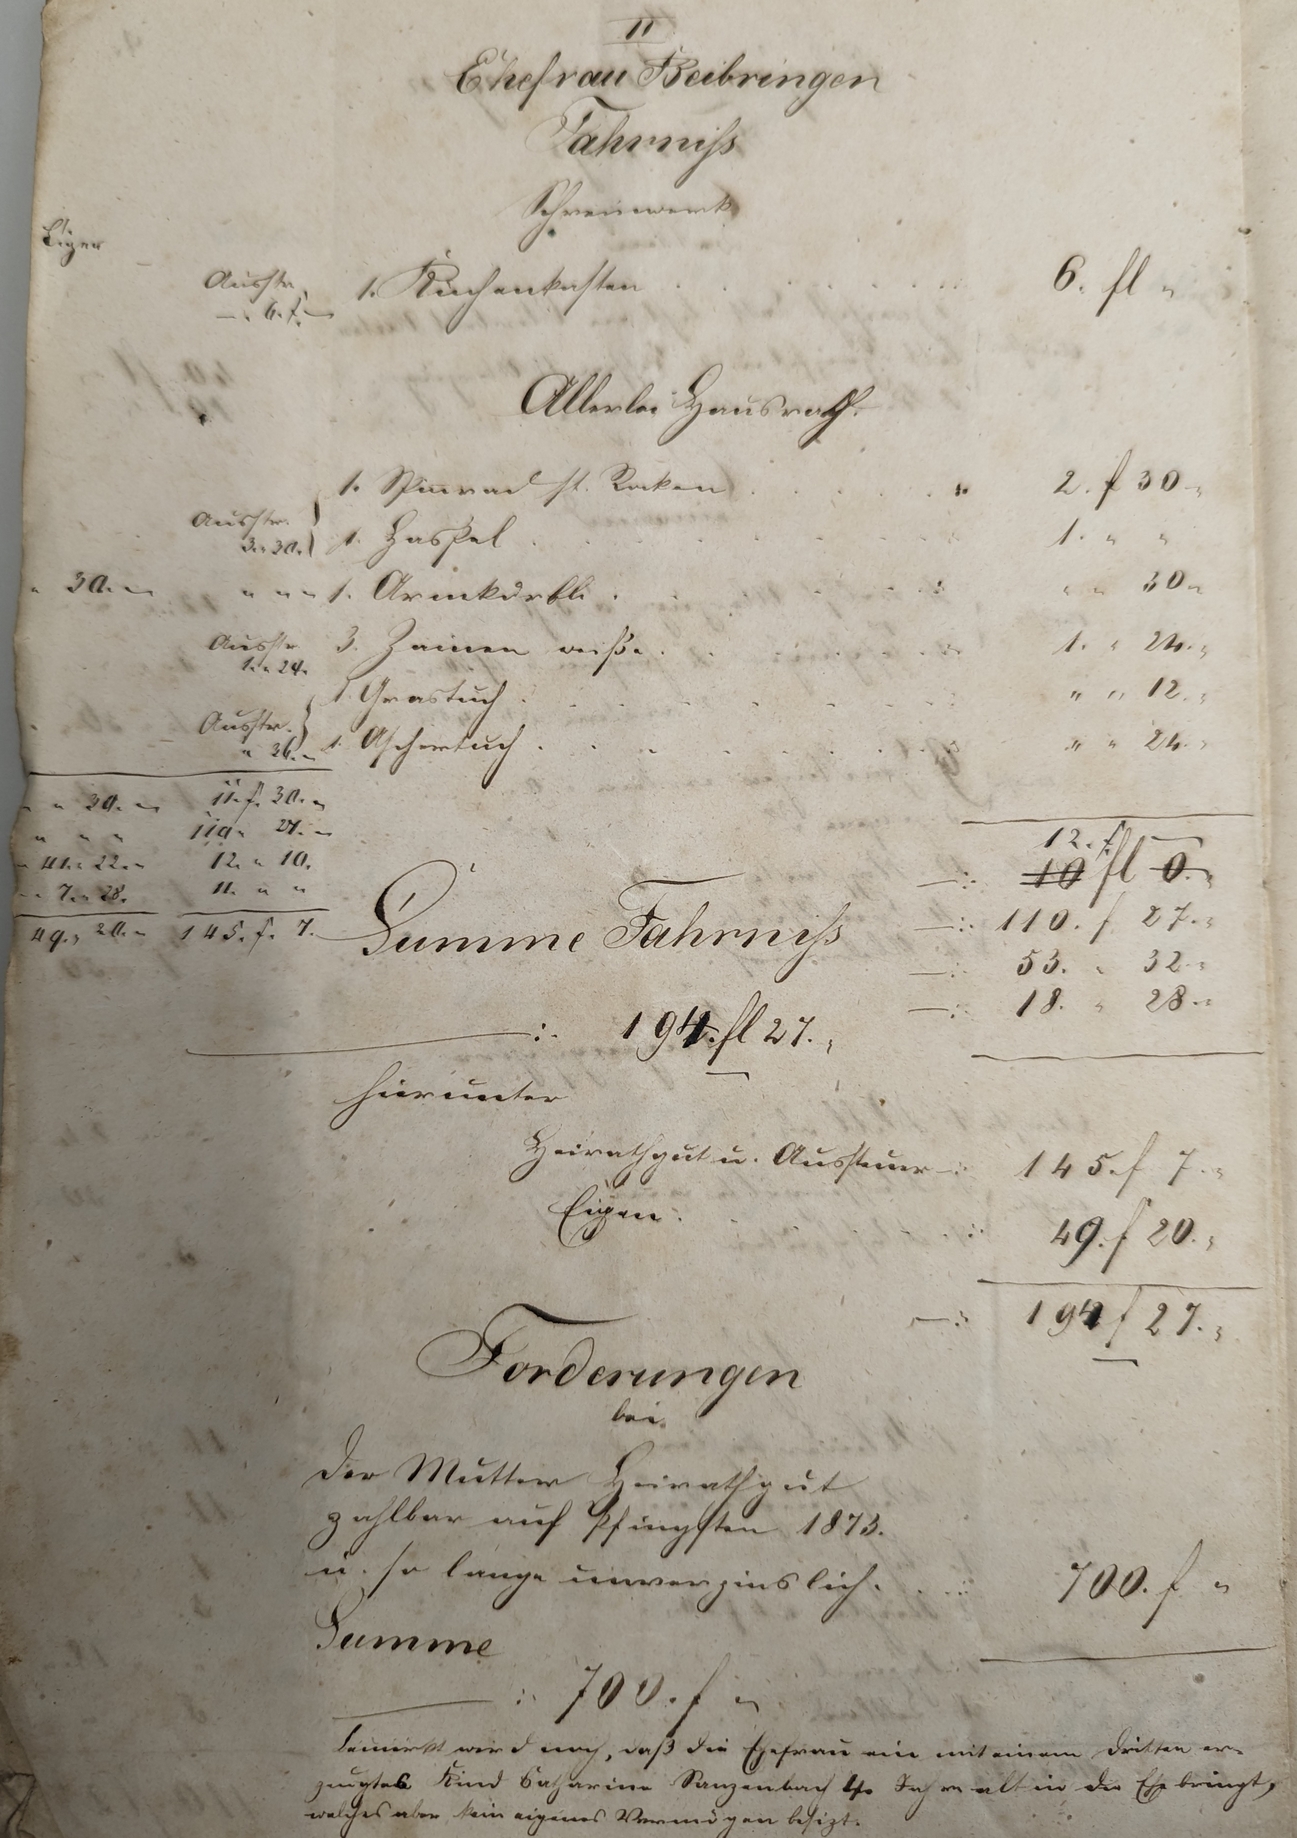 11
Ehefrau Beibringen
Fahrniß
Schreinwerk
Eigen
Ausstr. 6. f. 1. Küchenkasten 6. fl "
Allerlei Hausrath.
1. Spinnrad st. Rocken 2. f 30 "
Ausstr. 3. 30. 1. Haspel 1. " "
" 30. " " " " 1. Armkörbli " " 30 "
Ausstr. 1. " 24. 3. Zainen weiße 1. " 24. "
1. Grastuch " " 12. "
Ausstr. " 36. " 1. Aschertuch " " 24. "
" " 30. " 11. f. 30. " 12. f. —
" " " 110 " 27. " 10 fl 0. "
41. " 22. " 12. " 10. 110. f 27. "
7. " 28. 11. " " 53. " 32. "
49. " 20. " 145. f. 7. Summe Fahrniß 18. " 28. "
—: 194. fl 27. "
hierunter
Heirathgut u. Aussteuer —: 145. f 7. "
Eigen. 49. f 20. "
—: 194 f 27. "
Forderungen
bei
der Mutter Heirathgut
zahlbar auf Pfingsten 1873.
u. so lange unverzinslich. 700. f "
Summe
—: 700. f "
bemerkt wird noch, daß die Ehefrau ein mit einem Dritten er-
zeugtes Kind Catharine Sanzenbach Jahre alt in die Ehe bringt,
welches aber kein eigenes Vermögen besizt.